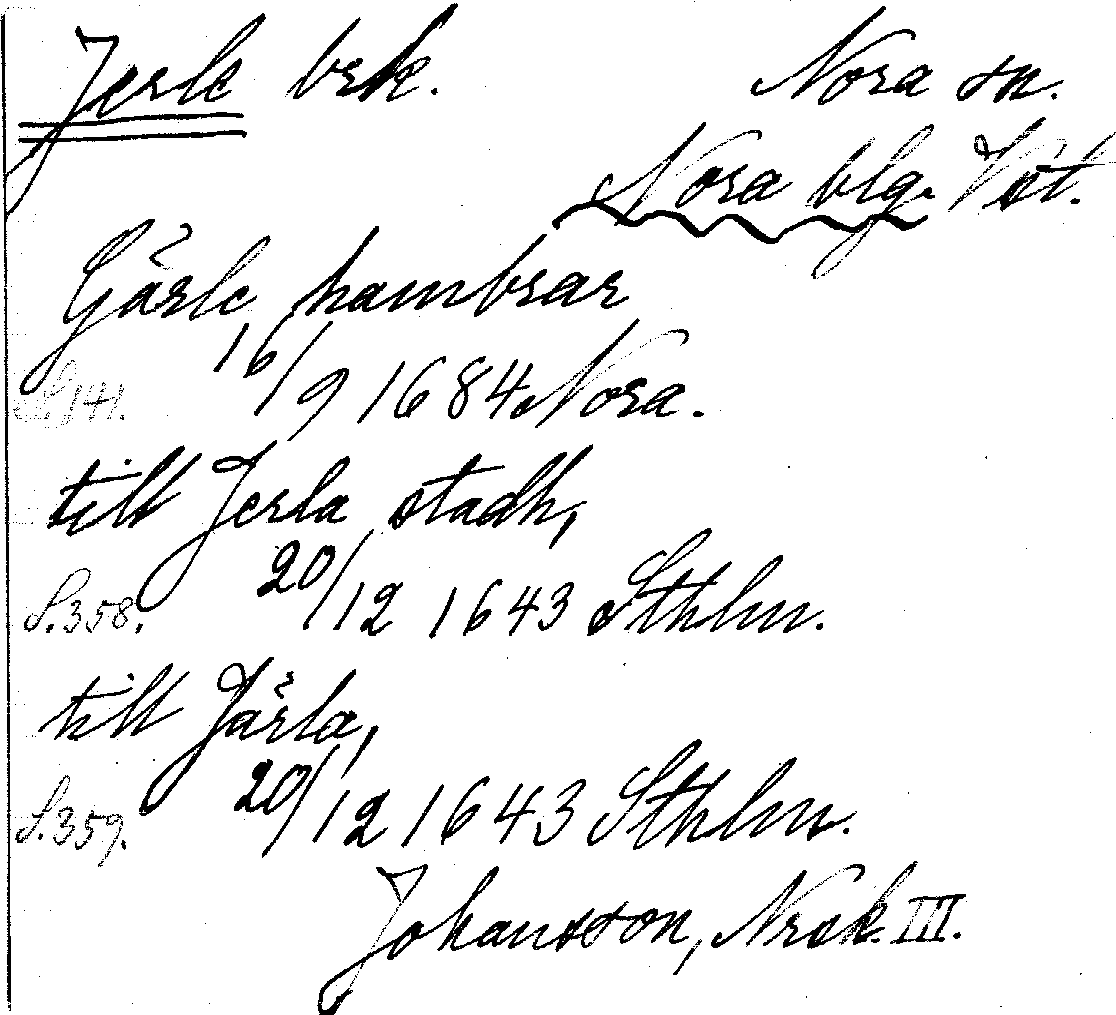 Jerle brk. Nora sn.
Nora blg. Vst.
Gärle hambrar
S. 141. 16/9 1684 Nora.
till Jerla stadh,
S. 358. 20/12 1643 Sthlm.
till Järla,
S. 359. 20/12 1643 Sthlm.
Johansson, Nrsk. III.